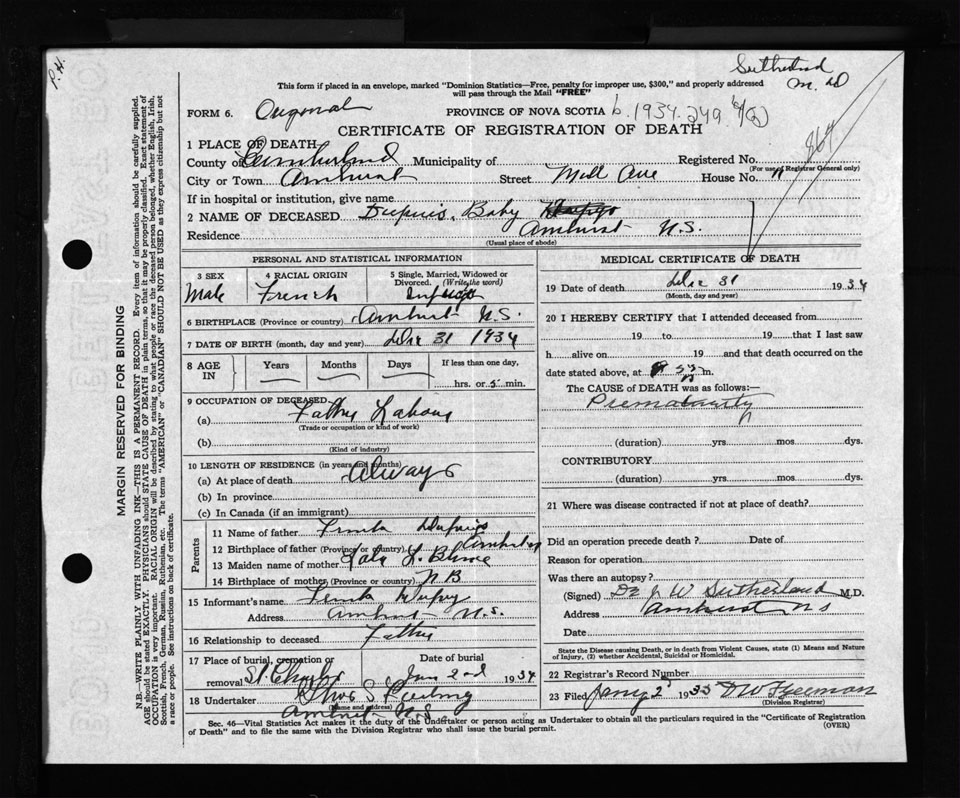 R.H.
Sutherland
M.D
This form if placed in an envelope, marked "Dominion Statistics—Free, penalty for improper use, $300," and properly addressed
will pass through the Mail "FREE"
FORM 6. Original PROVINCE OF NOVA SCOTIA b. 1934.249
CERTIFICATE OF REGISTRATION OF DEATH 864
1 PLACE OF DEATH
County of Cumberland Municipality of Registered No.
(For use of Registrar General only)
City or Town Amherst Street Mill Ave House No. "
If in hospital or institution, give name
2 NAME OF DECEASED Dupuis, Baby
Residence Amherst N.S.
(Usual place of abode)
PERSONAL AND STATISTICAL INFORMATION
3 SEX 4 RACIAL ORIGIN 5 Single, Married, Widowed or
Divorced. (Write the word)
Male French
6 BIRTHPLACE (Province or country) Amherst N.S.
7 DATE OF BIRTH (month, day and year) Dec 31 1934
8 AGE IN Years Months Days If less than one day,
hrs. or 5 min.
9 OCCUPATION OF DECEASED
(a) Father Labour
(Trade or occupation or kind of work)
(b)
(Kind of industry)
10 LENGTH OF RESIDENCE (in years and months)
(a) At place of death Always
(b) In province
(c) In Canada (if an immigrant)
Parents
11 Name of father Frank Dupuis
12 Birthplace of father (Province or country) Amherst
13 Maiden name of mother
14 Birthplace of mother (Province or country) N B
15 Informant's name Dupuy
Address Amherst N.S.
16 Relationship to deceased Father
17 Place of burial, cremation or Date of burial
removal St. Charles Jan 2nd 1934
18 Undertaker S
(Name and address)
Amherst N.S
MEDICAL CERTIFICATE OF DEATH
19 Date of death Dec 31 1934
(Month, day and year)
20 I HEREBY CERTIFY that I attended deceased from
19 to 19 that I last saw
h alive on 19 and that death occurred on the
date stated above, at m.
The CAUSE OF DEATH was as follows:—
Prematurity
(duration) yrs. mos. dys.
CONTRIBUTORY
(duration) yrs. mos. dys.
21 Where was disease contracted if not at place of death?
Did an operation precede death? Date of
Reason for operation
Was there an autopsy?
(Signed) Dr J W Sutherland M.D.
Address Amherst N S
Date
State the Disease causing Death, or in death from Violent Causes, state (1) Means and Nature
of Injury, (2) whether Accidental, Suicidal or Homicidal.
22 Registrar's Record Number
23 Filed Jany 2 1935 D W Freeman
(Division Registrar)
Sec. 46—Vital Statistics Act makes it the duty of the Undertaker or person acting as Undertaker to obtain all the particulars required in the "Certificate of Registration
of Death" and to file the same with the Division Registrar who shall issue the burial permit.
(OVER)
MARGIN RESERVED FOR BINDING
N.B.—WRITE PLAINLY WITH UNFADING INK—THIS IS A PERMANENT RECORD. Every item of information should be carefully supplied.
AGE should be stated EXACTLY. PHYSICIANS should STATE CAUSE OF DEATH in plain terms, so that it may be properly classified. Exact statement of
OCCUPATION is very important. RACIAL ORIGIN will be described by stating to what people or race the deceased person belonged, whether English, Irish,
Scottish, French, German, Russian, Ruthenian, etc. The terms "AMERICAN" or "CANADIAN" SHOULD NOT BE USED as they express citizenship but not
a race or people. See instructions on back of certificate.